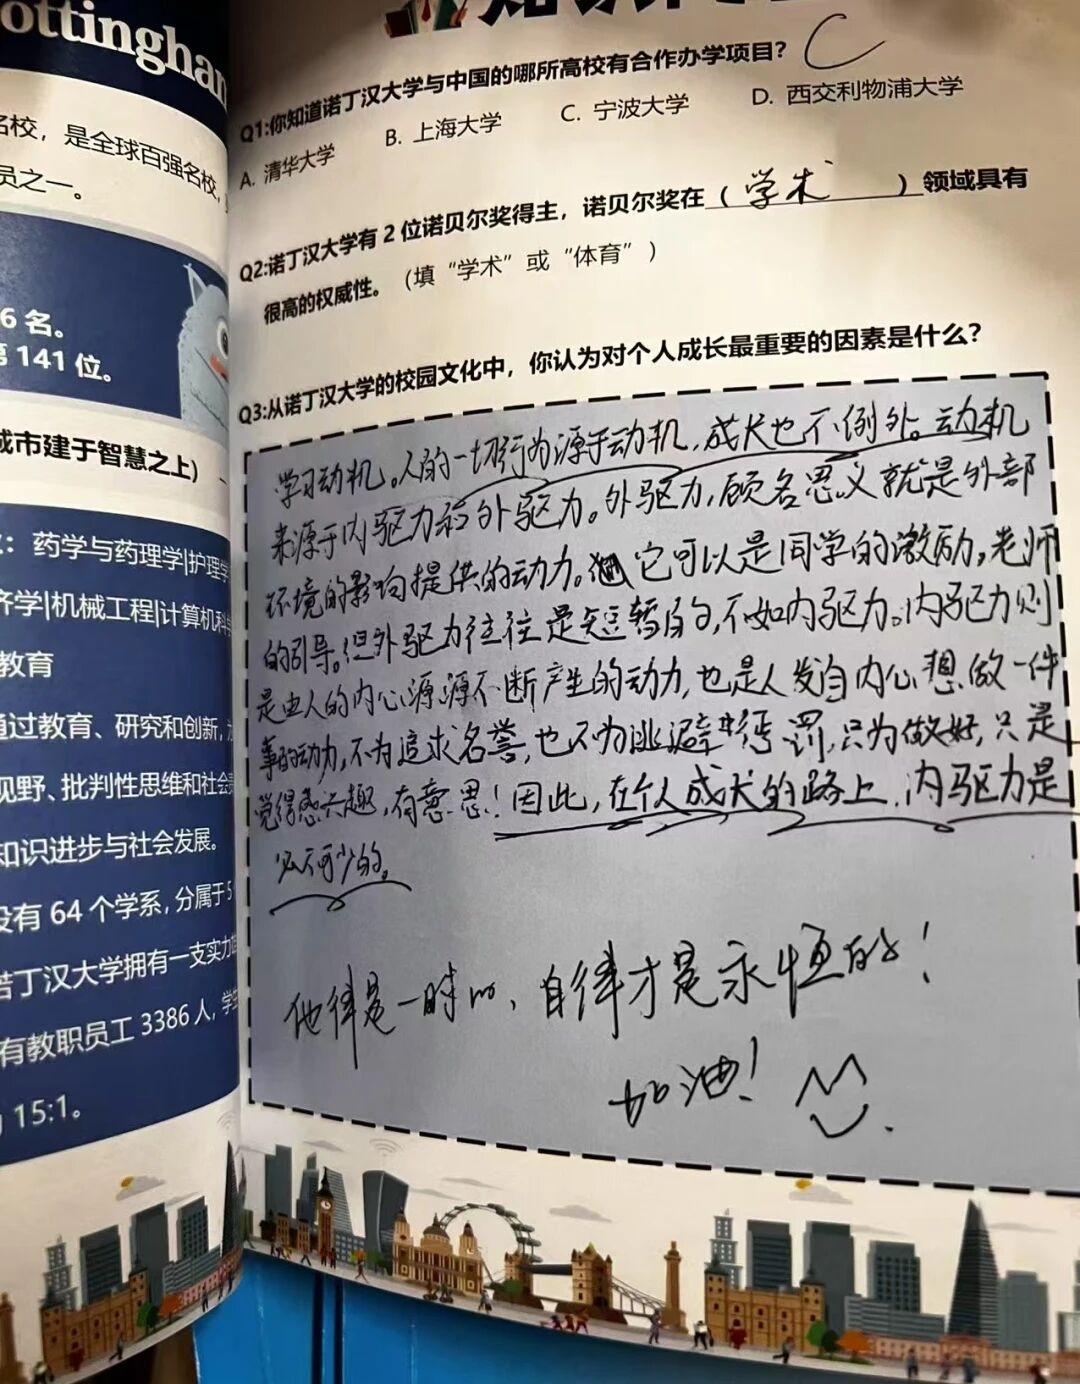 ottingham
名校，是全球百强名校，
员之一。
6 名。
第 141 位。
城市建于智慧之上）
：药学与药理学|护理学
济学|机械工程|计算机科学
教育
通过教育、研究和创新，
视野、批判性思维和社会责
知识进步与社会发展。
设有 64 个学系，分属于 5
诺丁汉大学拥有一支实力
有教职员工 3386 人，学生
15:1。
Q1:你知道诺丁汉大学与中国的哪所高校有合作办学项目？ C
A. 清华大学 B. 上海大学 C. 宁波大学 D. 西交利物浦大学
Q2:诺丁汉大学有 2 位诺贝尔奖得主，诺贝尔奖在（学术）领域具有
很高的权威性。（填“学术”或“体育”）
Q3:从诺丁汉大学的校园文化中，你认为对个人成长最重要的因素是什么？
学习动机。人的一切行为源于动机，成长也不例外。动机
来源于内驱力和外驱力。外驱力，顾名思义就是外部
环境的影响提供的动力。它可以是同学的激励，老师
的引导。但外驱力往往是短暂的，不如内驱力。内驱力则
是由人的内心源源不断产生的动力，也是人发自内心想做一件
事的动力，不为追求名誉，也不为逃避惩罚，只为做好，只是
觉得感兴趣，有意思！因此，在个人成长的路上，内驱力是
必不可少的。
他律是一时的，自律才是永恒的！
加油！